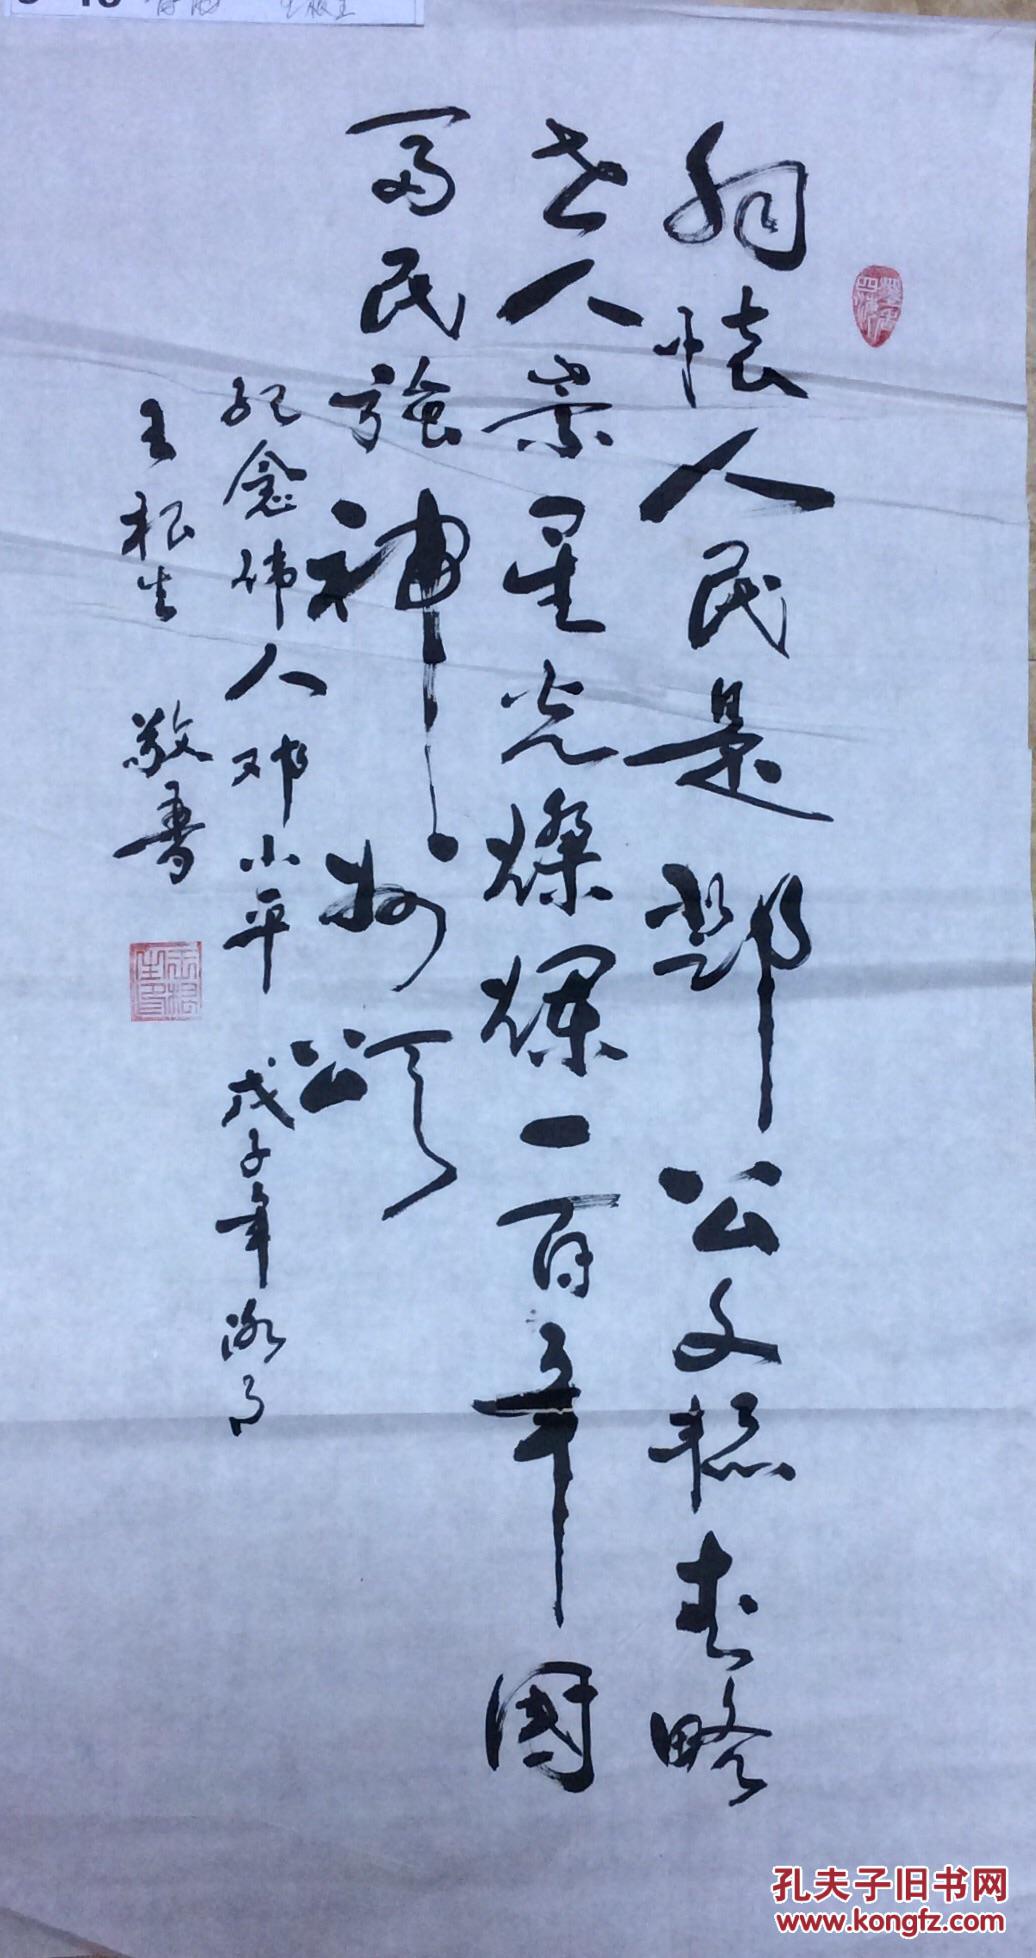 胸怀人民是邓公文韬武略
世人崇星光灿烂一百年国
富民强神州颂
纪念伟人邓小平 戊子年
王根生 敬书
孔夫子旧书网
www.kongfz.com